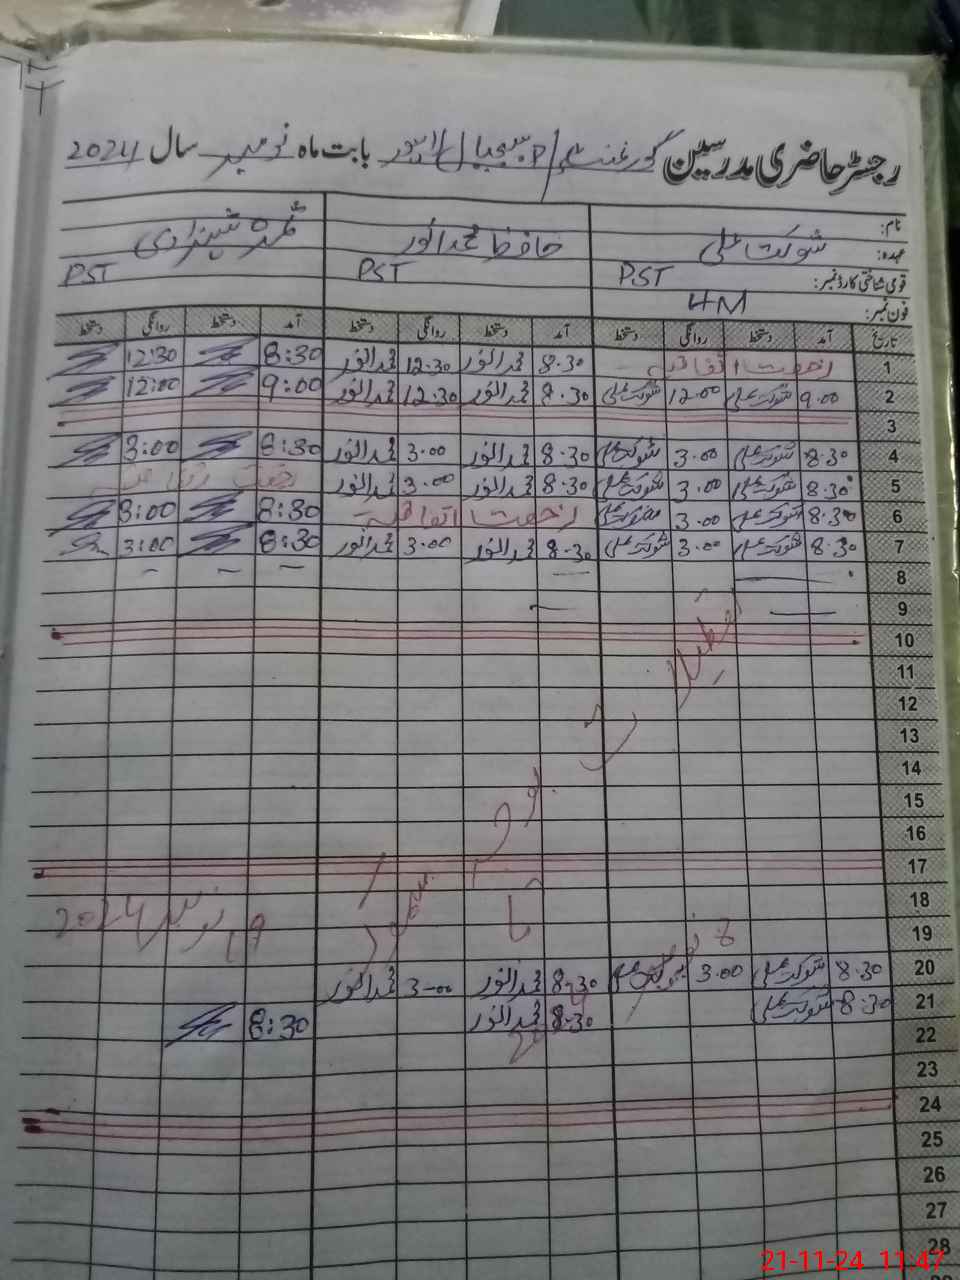 رجسٹر حاضری مدرسین گورنمنٹ بابت ماہ نومبر سال 2024
نام: شوکت علی حافظ محمد انور شہزادی
عہدہ: PST PST PST
قومی شناختی کارڈ نمبر:
فون نمبر: HM
تاریخ آمد دستخط روانگی دستخط آمد دستخط روانگی دستخط آمد دستخط روانگی دستخط
1 رخصت اتفاقیہ 8.30 محمد انور 12.30 محمد انور 8:30 12:30
2 9.00 شوکت علی 12.00 شوکت علی 8.30 محمد انور 12.30 محمد انور 9:00 12:00
3
4 8.30 شوکت علی 3.00 شوکت علی 8.30 محمد انور 3.00 محمد انور 8:30 3:00
5 8.30 شوکت علی 3.00 شوکت علی 8.30 محمد انور 3.00 محمد انور رخصت
6 8.30 شوکت علی 3.00 شوکت علی رخصت اتفاقیہ 8:30 3:00
7 8.30 شوکت علی 3.00 شوکت علی 8.30 محمد انور 3.00 محمد انور 8:30 3:00
8
9
10
11
12
13
14
15
16
17
18
19
8 نومبر
تا
19 نومبر 2024
20 8.30 شوکت علی 3.00 شوکت علی 8.30 محمد انور 3.00 محمد انور
21 8.30 شوکت علی 8.30 محمد انور 8:30
22
23
24
25
26
27
28
21-11-24 11:47